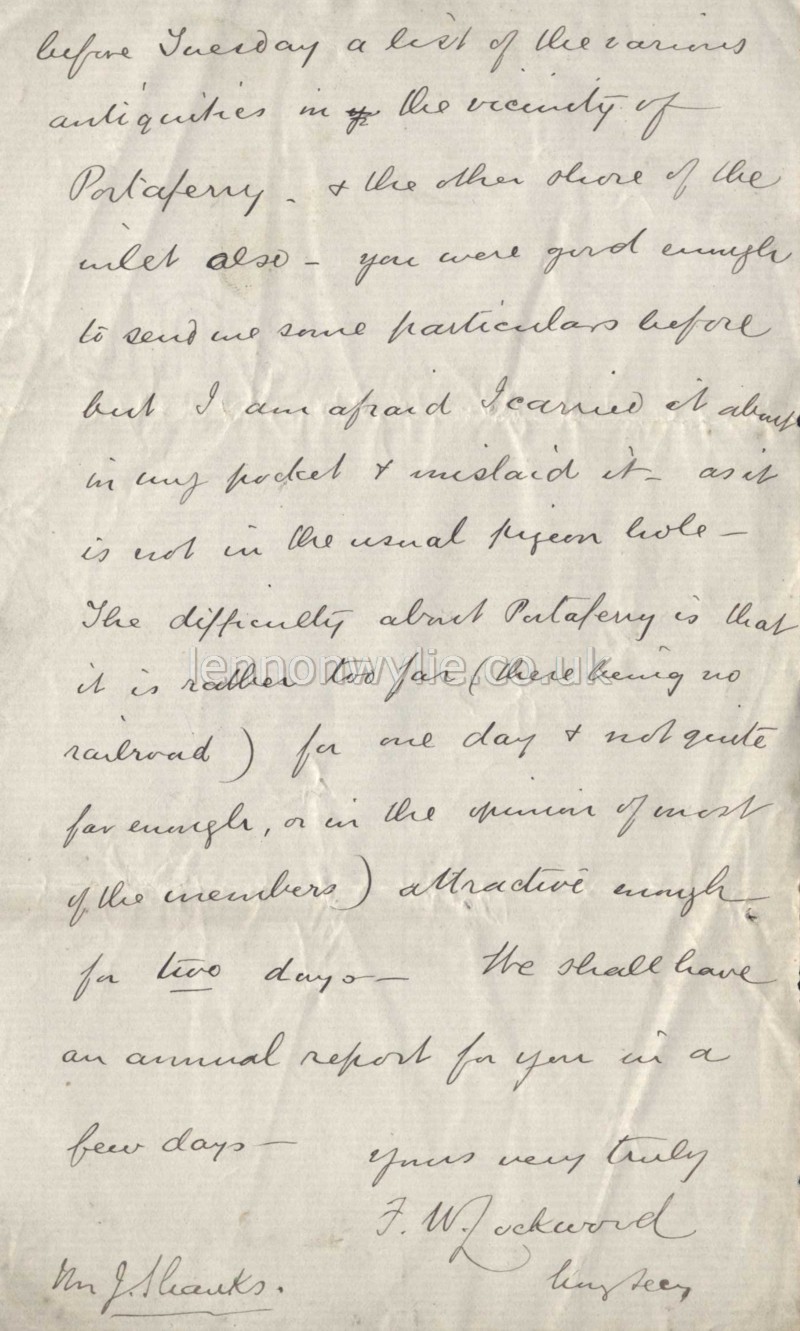 before Tuesday a list of the various
antiquities in the vicinity of
Portaferry - & the other shore of the
inlet also - you were good enough
to send me some particulars before
but I am afraid I carried it about
in my pocket & mislaid it - as it
is not in the usual pigeon hole -
The difficulty about Portaferry is that
it is rather too far (there being no
lennonwylie.co.uk
railroad) for one day & not quite
far enough, or in the opinion of most
of the members) attractive enough
for two days - We shall have
an annual report for you in a
few days -
yours very truly
F. W. Lockwood
Hony Secy
Mr J. Shanks.